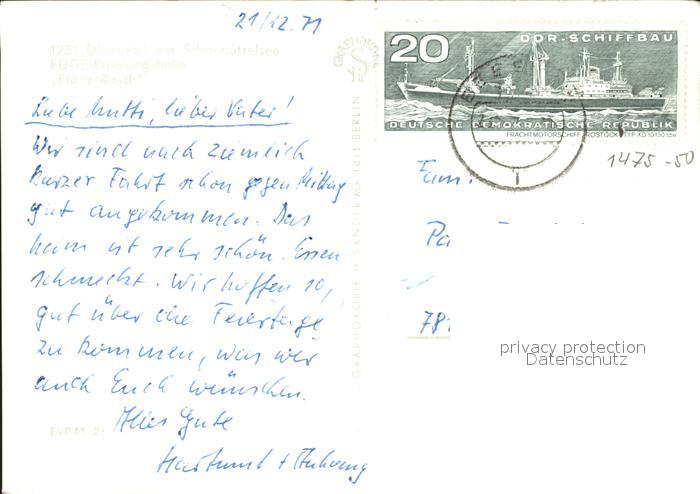 21/12.71
1231 Diensdorf am Scharmützelsee
FDGB Erholungsheim
„Franz Kusch"
Liebe Mutti, lieber Vater!
Wir sind nach ziemlich
kurzer Fahrt schon gegen Mittag
gut angekommen. Das
heim ist sehr schön. Essen
schmeckt. Wir hoffen so,
gut über die Feiertage
zu kommen, was wir
auch Euch wünschen.
Alles Gute
Hartmut + Anhang
EVP M -,25
GRAPHOKOPIE H. SANDER KG. 1071 BERLIN
GRAPHOKOPIE
20
DDR-SCHIFFBAU
DEUTSCHE DEMOKRATISCHE REPUBLIK
FRACHTMOTORSCHIFF ROSTOCK TYP XD 10130 tdw
1475 -50
Fam.
Pa
78
privacy protection
Datenschutz